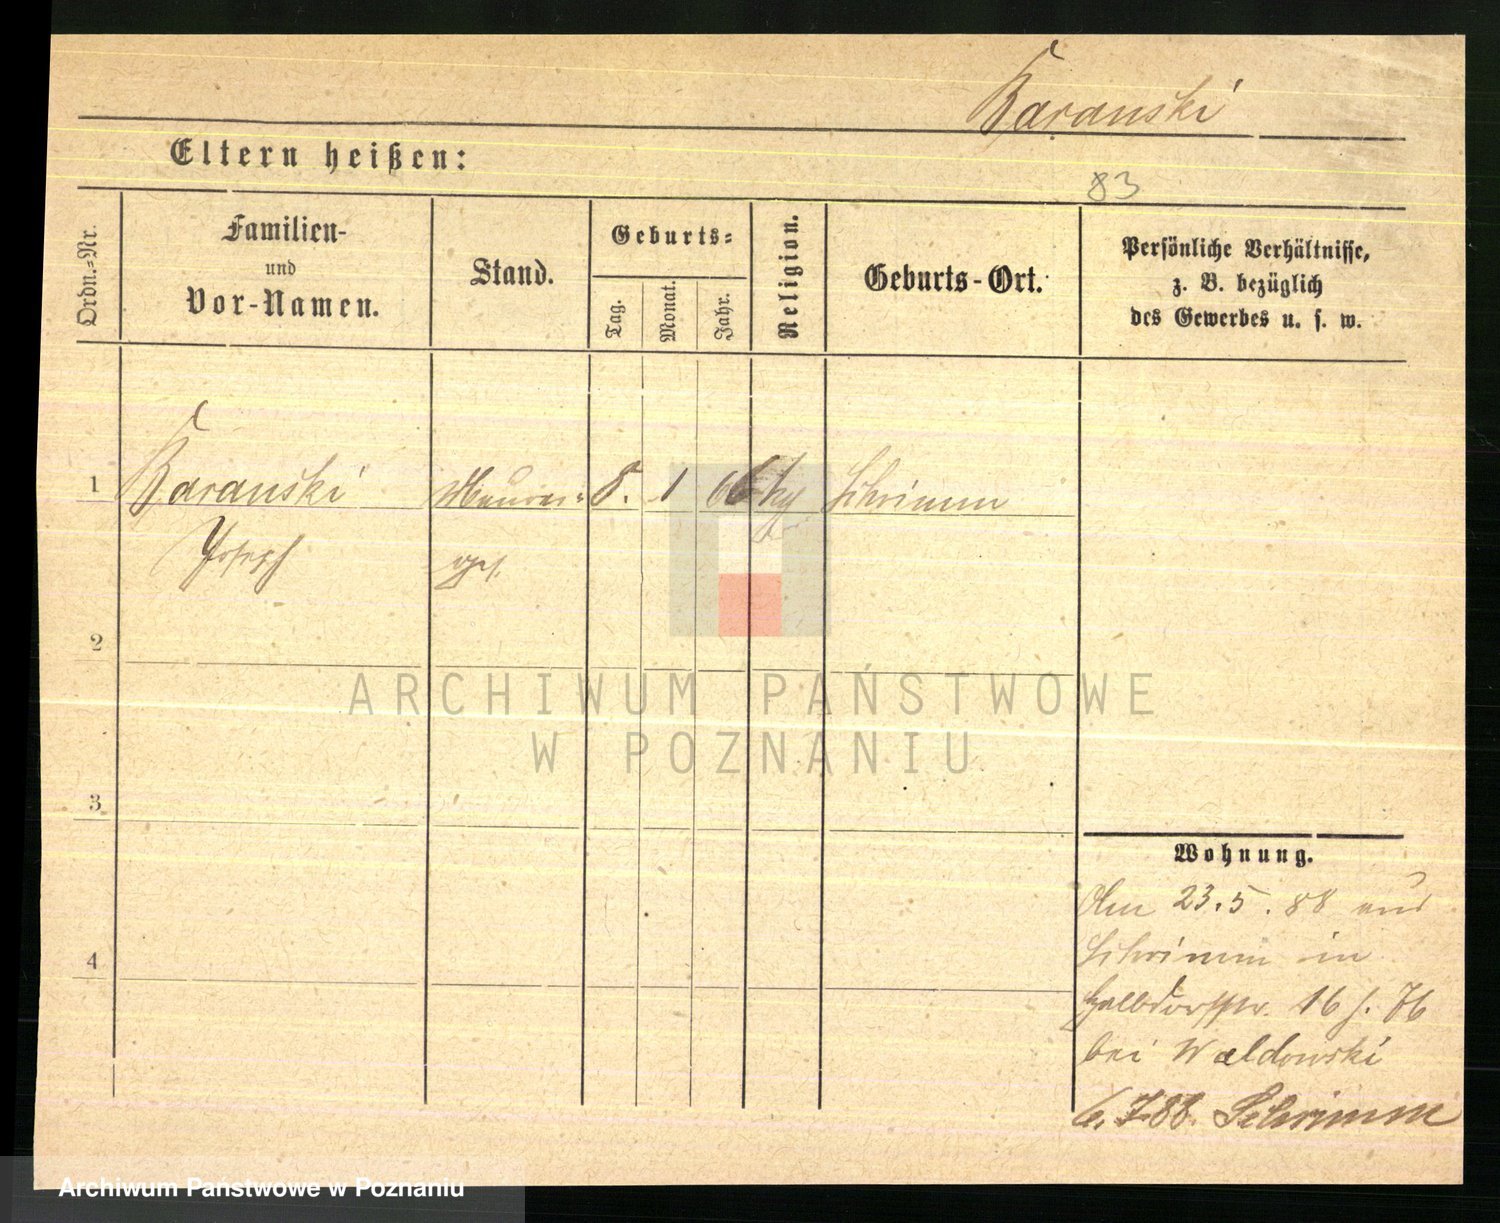 Baranski
Eltern heißen:
83
Ordn.=Nr.
Familien-
und
Vor-Namen.
Stand.
Geburts=
Tag.
Monat.
Jahr.
Religion.
Geburts-Ort.
Persönliche Verhältnisse,
z. B. bezüglich
des Gewerbes u. s. w.
1 Baranski Maurer= 8. 1 66 kg Schrimm
Joseph ges.
2
ARCHIWUM PAŃSTWOWE
W POZNANIU
3
Wohnung.
Am 23.5.88 aus
4
Schrimm in
Halbdorfstr. 16 b. 76
bei Waldowski
6.7.88. Schrimm
Archiwum Państwowe w Poznaniu